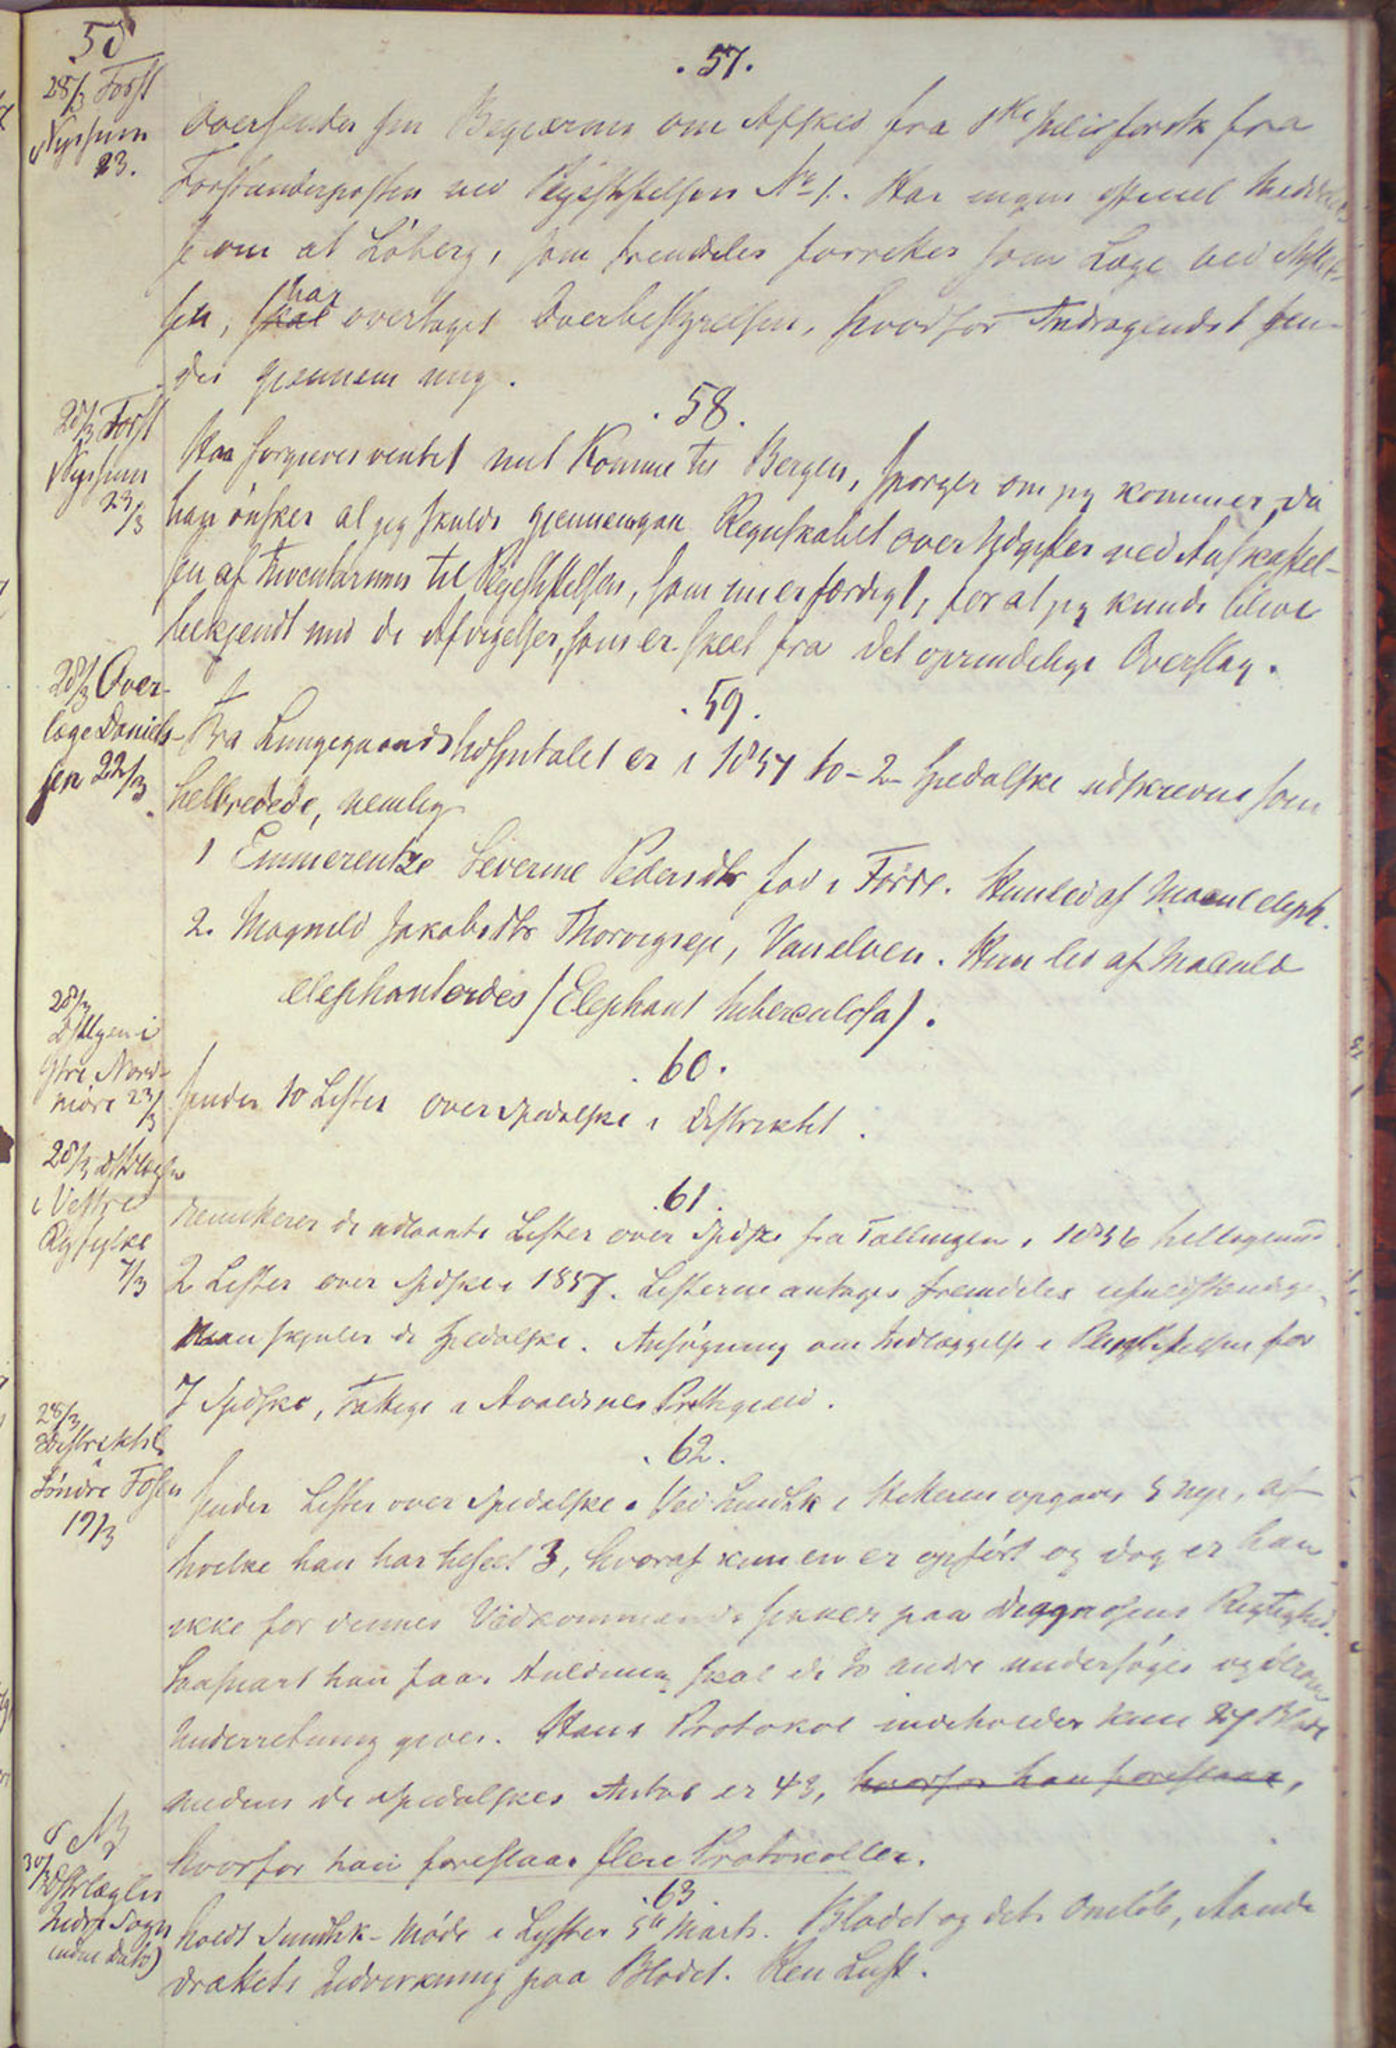 58
28/3 Forst
Nyssum
23.
.57.
Oversender sin Begjæring om Afsked fra 1ste Juli forstk fra
Forstanderposten ved Plejestiftelsen No 1. Har ingen officiel Meddelel
se om at Löberg, som fremdeles forretter som Læge ved Stiftel-
sen, skal har overtaget Overbestyrelsen, hvorfor Andragendet sen-
des gjennem mig.
28/3 Forst
Nyssum
23/3
.58.
Har forgjeves ventet mit Komme til Bergen, spørger om jeg kommer, da
han önsker at jeg skulde gjennemgaa Regnskabet over Udgifter ved Anskaffel-
sen af Inventarium til Plejestiftelsen, som nu er færdigt, for at jeg kunde blive
bekjendt med de Afvigelser, som er skeet fra det oprindelige Overslag.
28/3 Over-
læge Daniels-
sen 22/3.
.59.
Fra Lungegaardshospitalet er i 1857 to - 2 - Spedalske udskrevne som
helbredede, nemlig
1 Emmerentze Severine Pedersdtr fød i Förde. Hun led af Macul eleph.
2. Magnild Jakobsdtr Thorvigseje, Vanelven. Hun led af Maculæ
elephantoides (Elephant tuberculosa).
28/3
Dstlgen i
Ytre Nord-
möre 23/3
.60.
Sender to Lister over Spedalske i Distriktet.
28/3 Dstlægen
i Vestre
Ryfylke
7/3
.61.
Remitterer de udlaante Lister over Spdske fra Tællingen i 1856 tilligemed
2 Lister over Spdske i 1857. Listerne antages fremdeles ufuldstændige.
Man skjuler de Spedalske. Ansögning om Indlæggelse i Plejestiftelsen for
7 Spdske, Fattige i Avaldsnes Prstgjeld.
28/3
Distriktsl
i
Söndre Fosen
19/3
.62.
Sender Lister over Spedalske. Ved Sundhk i Hitteren opgaves 5 nye, af
hvilke han har tilseet 3, hvoraf kun en er opfört og dog er han
ikke for dennes Vedkommende sikker paa Diagnosens Rigtighed.
Saasnart han faar Anledning skal de to andre undersöges og derom
Underretning gives. Hans Protokol indeholder kun 27 Blade
medens de Spedalskes Antal er 43, hvorfor han foreslaar,
hvorfor han foreslaar flere Protokoller.
30/3
Dstrlæglen
Indre Sogn
(uden Dato)
.63.
holdt Sundhk-Möde i Lyster 5te Marts. Blodet og dets Omlöb, Aande
drættets Indvirkning paa Blodet. Ren Luft.